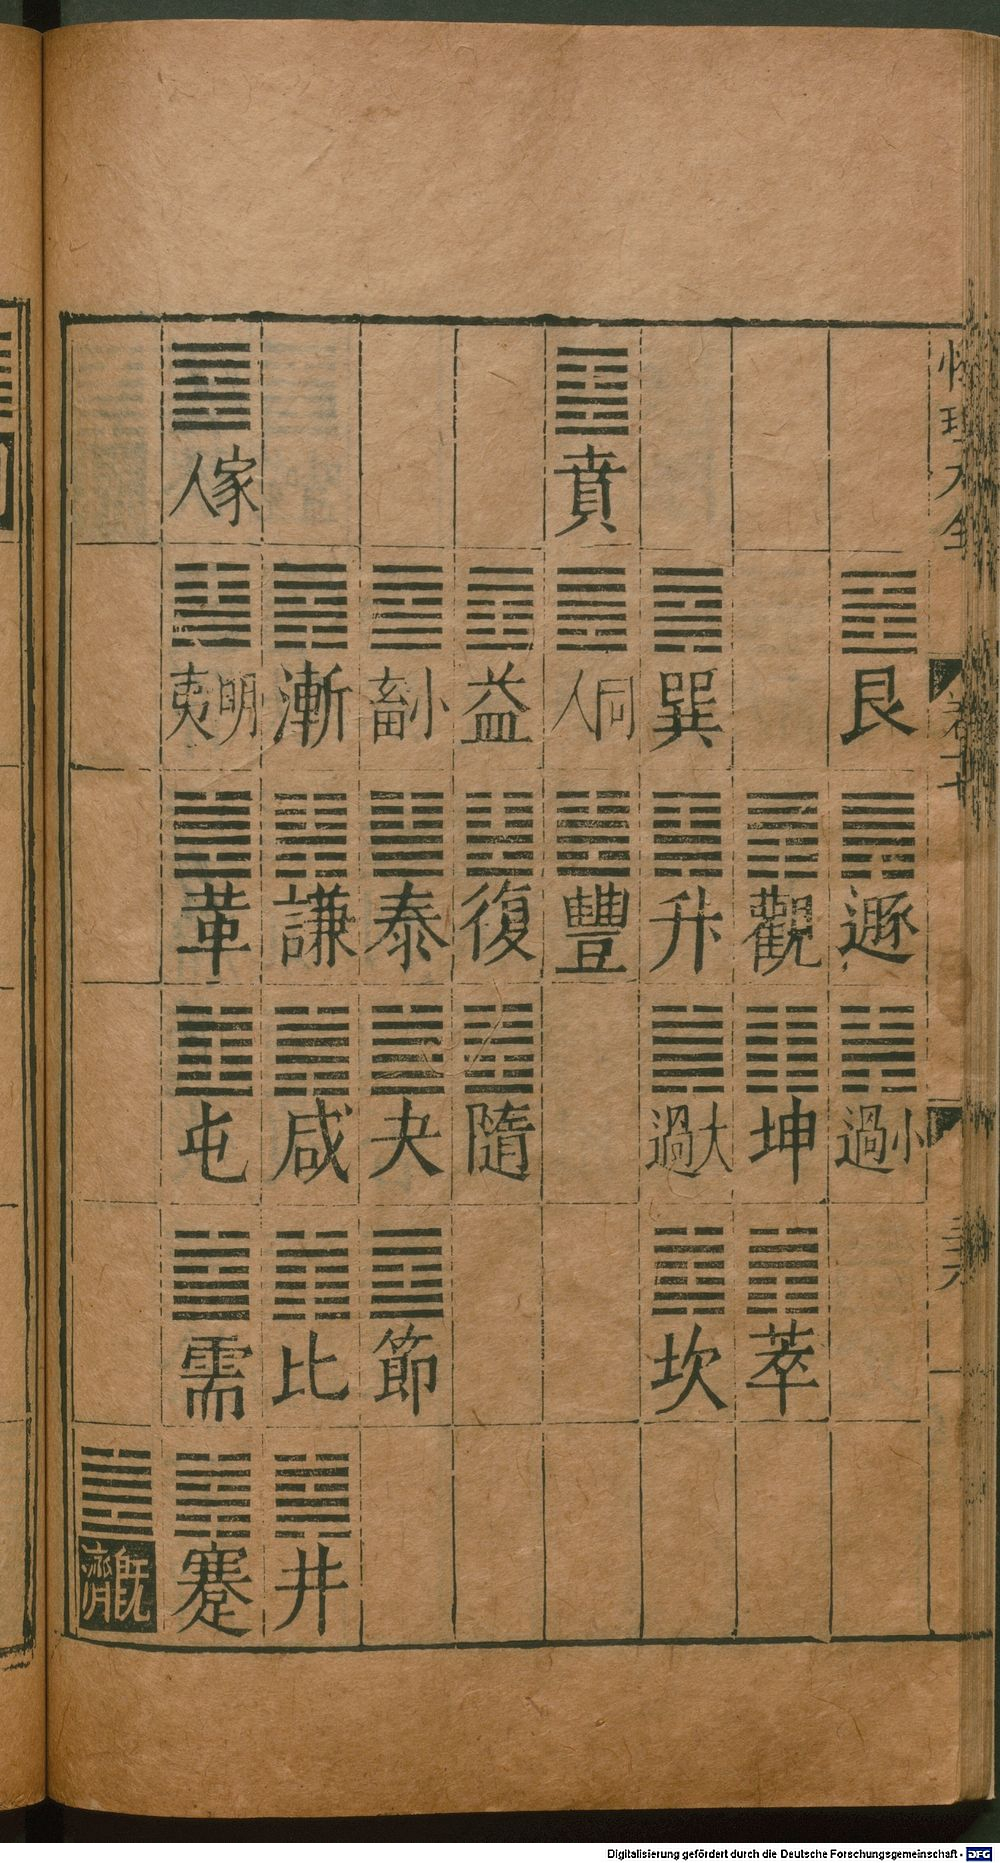 性理大全
艮 遯 小過
觀 坤 萃
巽 升 大過 坎
賁 同人 豐
益 復 隨
小畜 泰 夬 節
漸 謙 咸 比 井
家人 明夷 革 屯 需 蹇
既濟
Digitalisierung gefördert durch die Deutsche Forschungsgemeinschaft - DFG